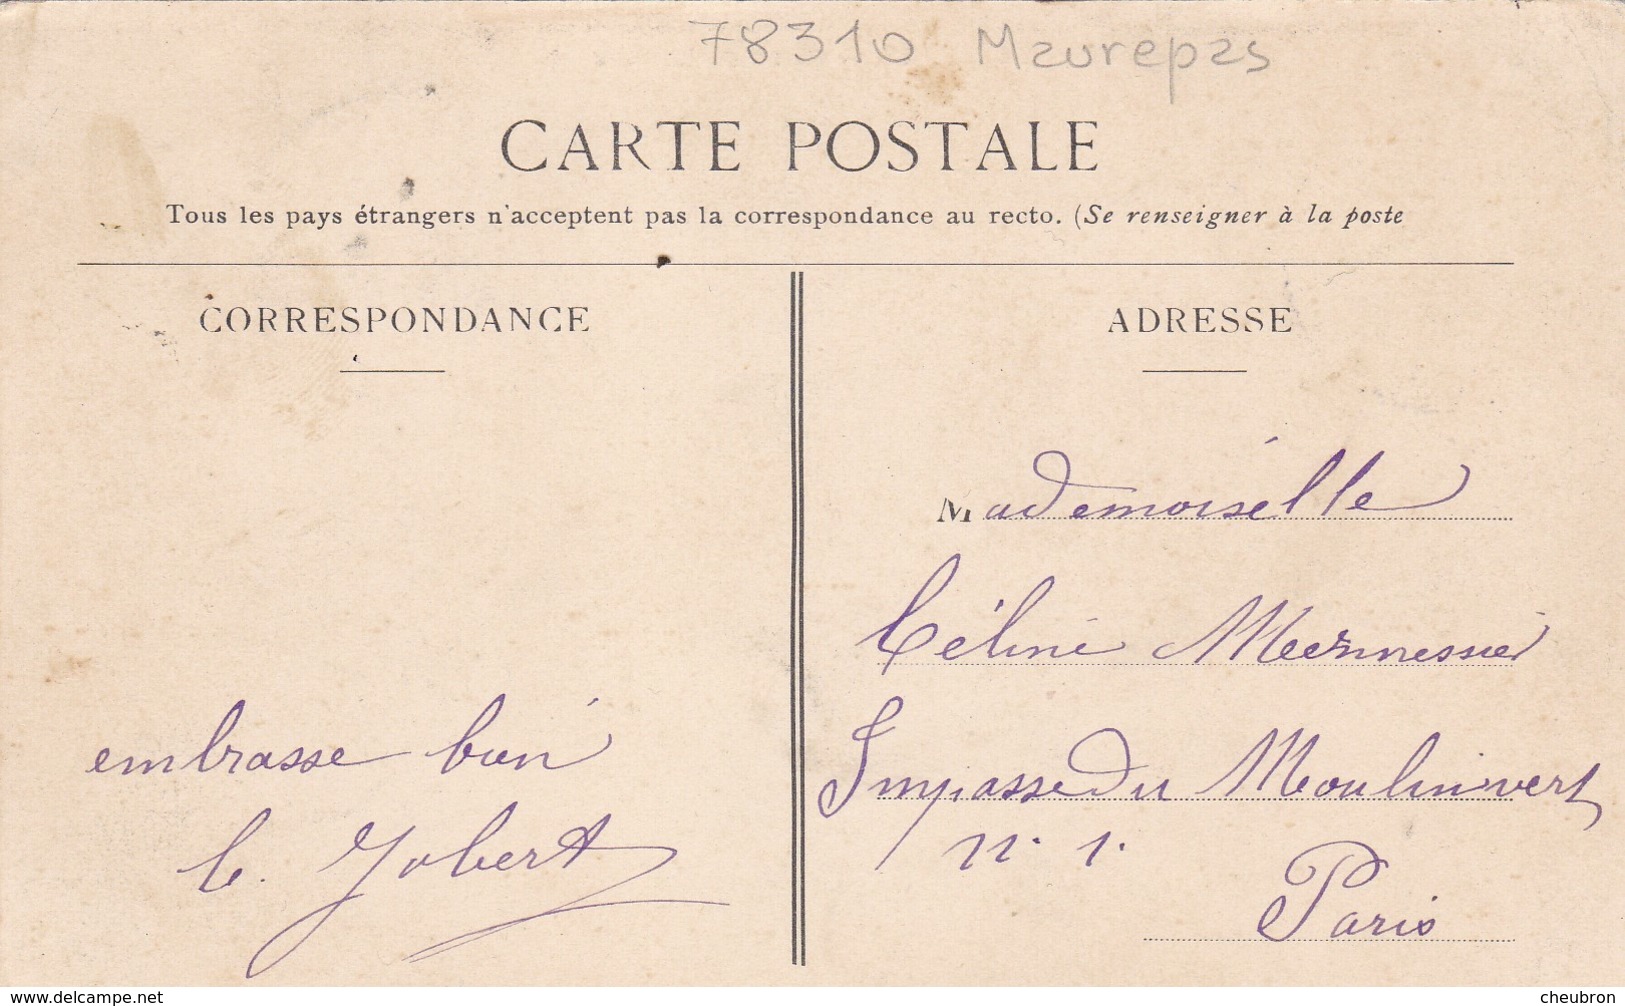 78310 Maurepas
CARTE POSTALE
Tous les pays étrangers n'acceptent pas la correspondance au recto. (Se renseigner à la poste
CORRESPONDANCE
embrasse bien
C. Jobert
ADRESSE
Mademoiselle
Céline
Impasse du Moulin vert
n. 1.
Paris
www.delcampe.net
cheubron